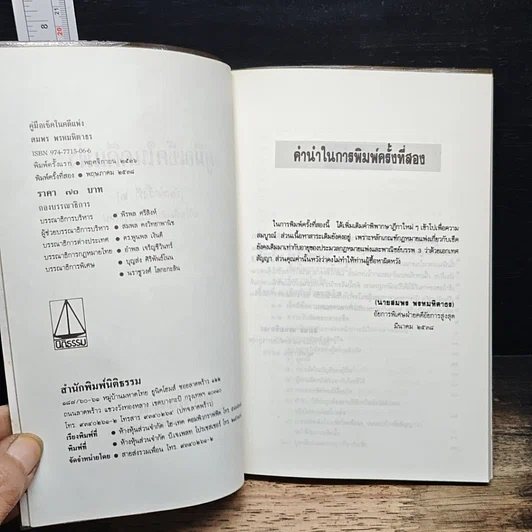 คู่มือเช็คในคดีแพ่ง
สมพร พรหมหิตาธร
ISBN 974-7713-06-6
พิมพ์ครั้งแรก • พฤศจิกายน ๒๕๓๖
พิมพ์ครั้งที่สอง • พฤษภาคม ๒๕๓๘
ราคา ๗๐ บาท
กองบรรณาธิการ
บรรณาธิการบริหาร • พีรพล ศรีสิงห์
ผู้ช่วยบรรณาธิการบริหาร • สมพล คงวิทยาพานิช
บรรณาธิการต่างประเทศ • ดรพูนผล เงินดี
บรรณาธิการกฎหมายไทย • อำพล เจริญชีวินทร์
บรรณาธิการพิเศษ • บุญส่ง ศิริพันธ์โนน
• นราชูวงศ์
นิติธรรม
สำนักพิมพ์นิติธรรม
หมู่บ้านมหาดไทย ยูนิคโฮมส์ ซอยลาดพร้าว ๑๒๒
ถนนลาดพร้าว แขวงวังทองหลาง เขตบางกะปิ กรุงเทพฯ
โทร. โทรสาร (ปทจ.ลาดพร้าว)
เรียงพิมพ์ที่ • ห้างหุ้นส่วนจำกัด ไฮ-เทค คอมพิวกราฟฟิค โทร.
พิมพ์ที่ • ห้างหุ้นส่วนจำกัด โทร.
จัดจำหน่ายโดย • สายส่งรวมเพื่อน โทร.
คำนำในการพิมพ์ครั้งที่สอง
ในการพิมพ์ครั้งที่สองนี้ ได้เพิ่มเติมคำพิพากษาฎีกาใหม่ ๆ เข้าไปเพื่อความ
สมบูรณ์ ส่วนเนื้อหาสาระเดิมยังคงอยู่ เพราะหลักเกณฑ์กฎหมายแพ่งเกี่ยวกับเช็ค
ยังคงเดิมมาเท่ากับอายุของประมวลกฎหมายแพ่งและพาณิชย์บรรพ ๓ ว่าด้วยเอกเทศ
สัญญา ส่วนคุณค่านั้นหวังว่าคงไม่ทำให้ท่านผู้ซื้อหาผิดหวัง
(นายสมพร พรหมหิตาธร)
อัยการพิเศษฝ่ายคดีอัยการสูงสุด
มีนาคม ๒๕๓๘
8
20
21